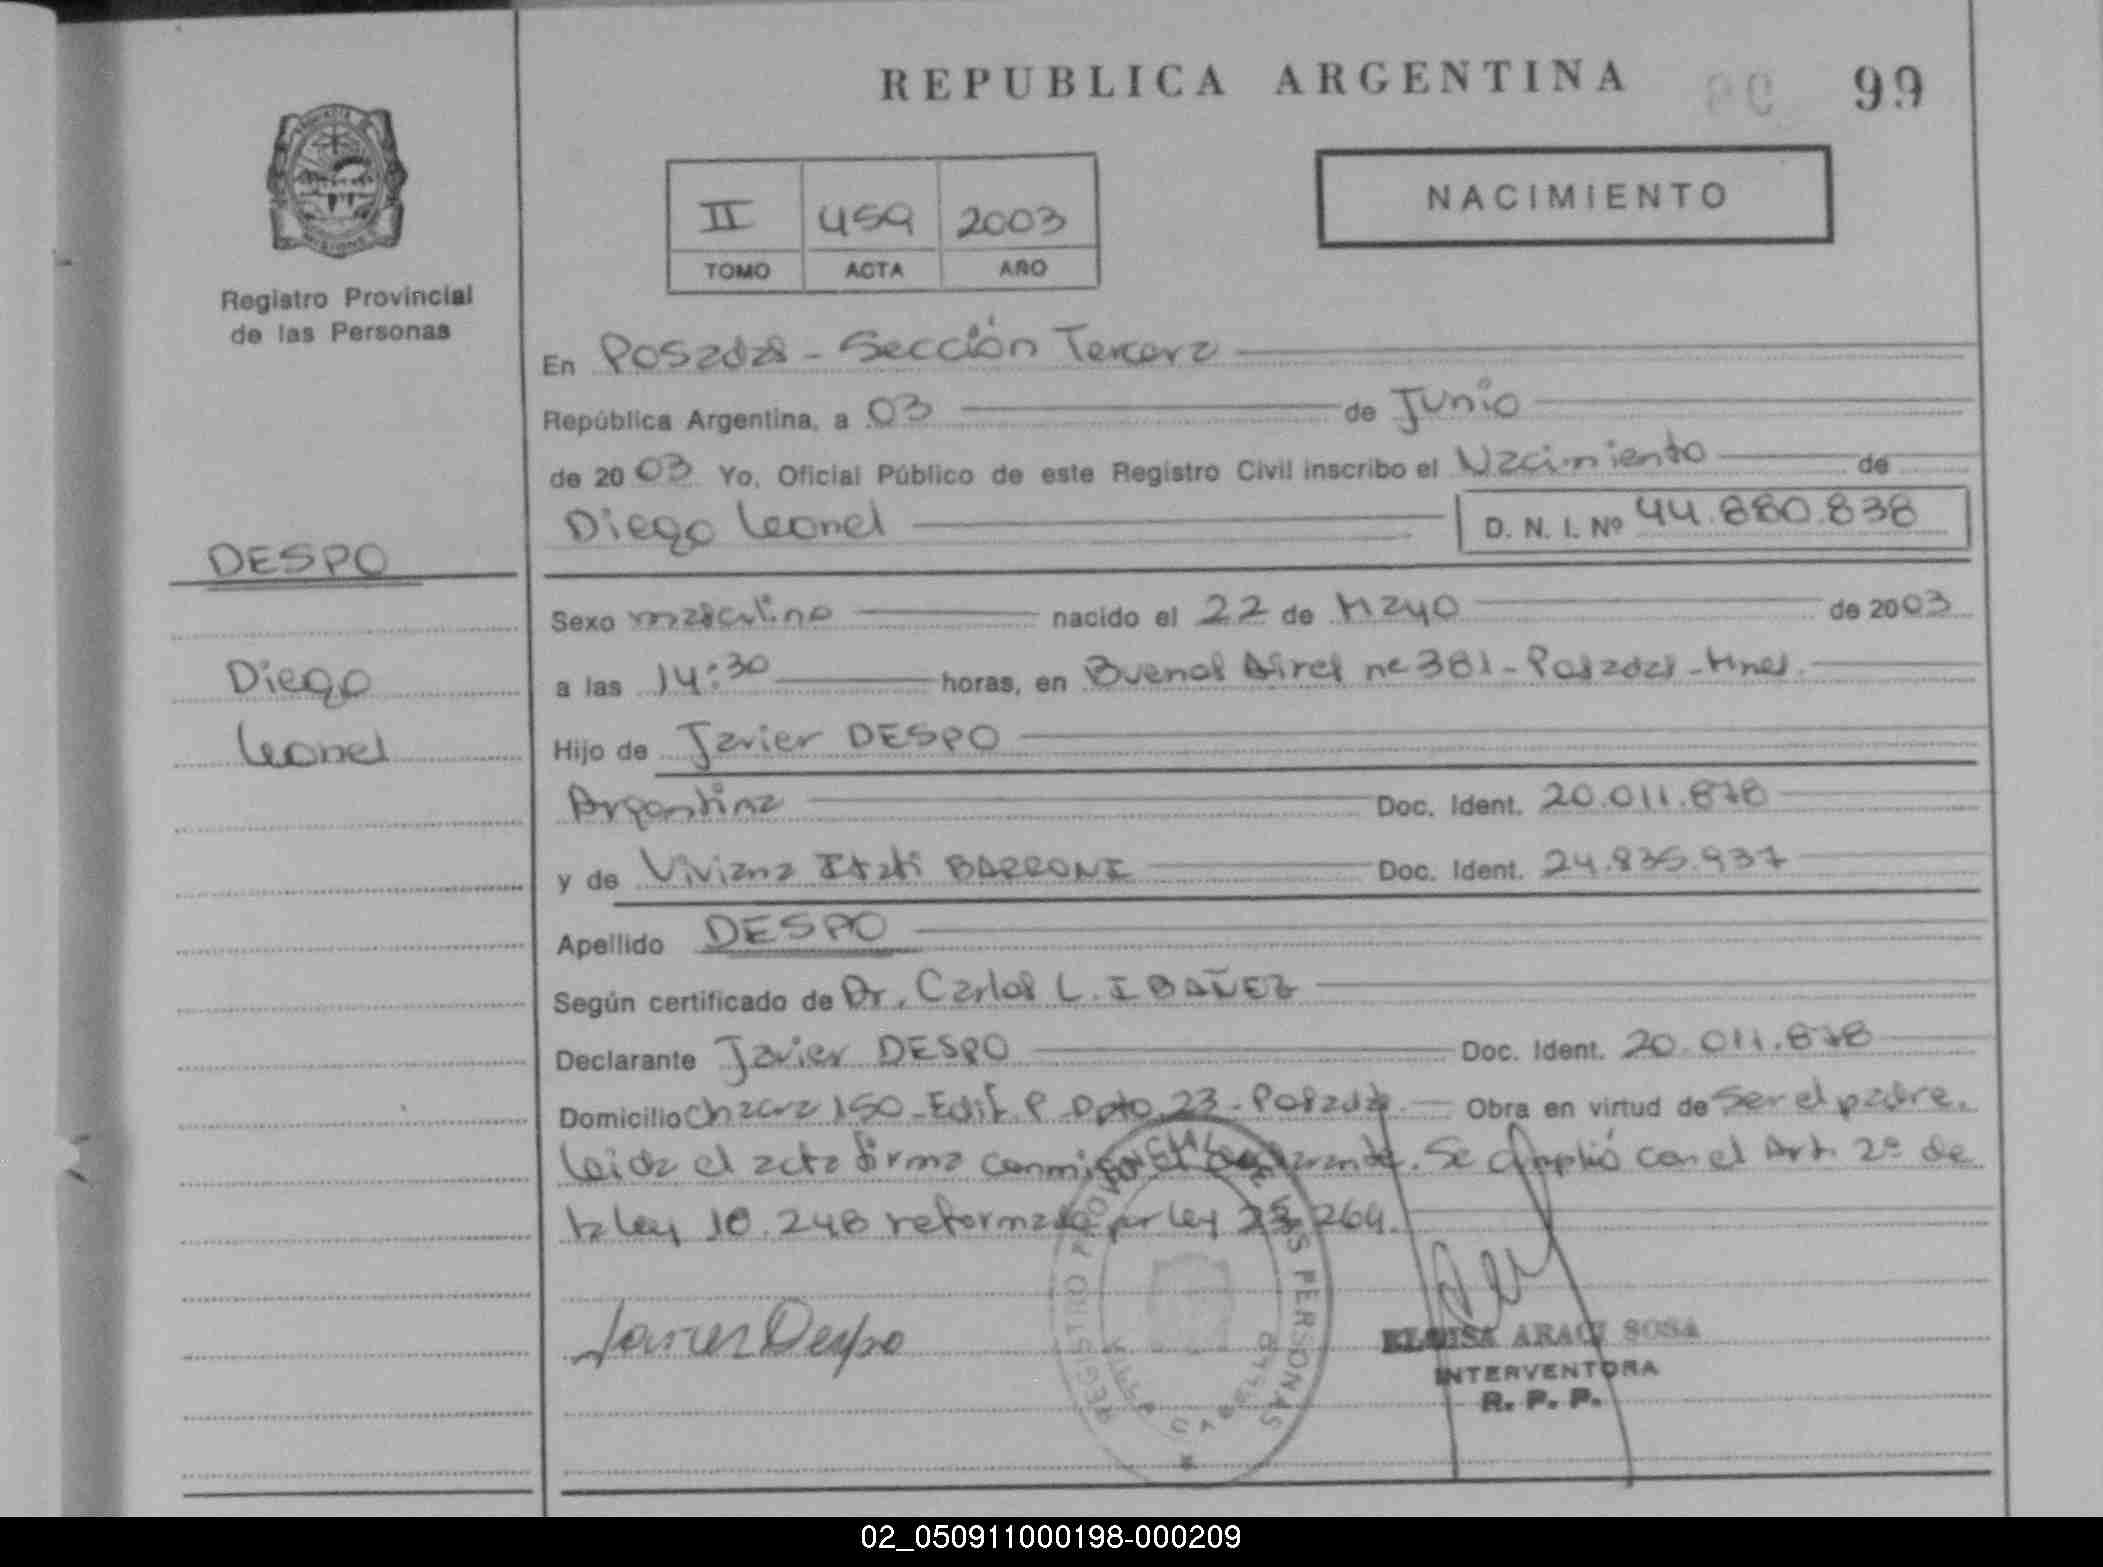 REPUBLICA ARGENTINA 99
NACIMIENTO
II 459 2003
TOMO ACTA AÑO
Registro Provincial
de las Personas
En Posadas - Sección Tercera
República Argentina, a 03 de Junio
de 2003 Yo, Oficial Público de este Registro Civil inscribo el Nacimiento de
Diego Leonel D. N. I. Nº 44.880.838
DESPO
Diego
Leonel
Sexo masculino nacido el 22 de Mayo de 2003
a las 14:30 horas, en Buenos Aires nº 381 - Posadas - Mnes.
Hijo de Javier DESPO
Argentina Doc. Ident. 20.011.878
y de Viviana Itati BARRONI Doc. Ident. 24.835.937
Apellido DESPO
Según certificado de Dr. Carlos L. IBAÑEZ
Declarante Javier DESPO Doc. Ident. 20.011.878
Domicilio Chacra 150 - Edif. P Dpto. 23 - Posadas. Obra en virtud de ser el padre.
Leida el acta firma conmigo el declarante. Se amplió con el Art. 2º de
la ley 18.248 reformada por ley 23.264.
Javier Despo
REGISTRO PROVINCIAL DE LAS PERSONAS
ELOISA ARACI SOSA
INTERVENTORA
R. P. P.
02_050911000198-000209